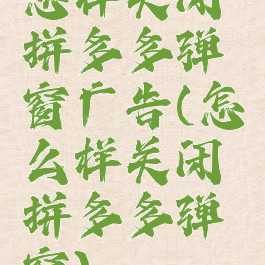 怎样关闭
拼多多弹
窗广告(怎
么样关闭
拼多多弹
窗)